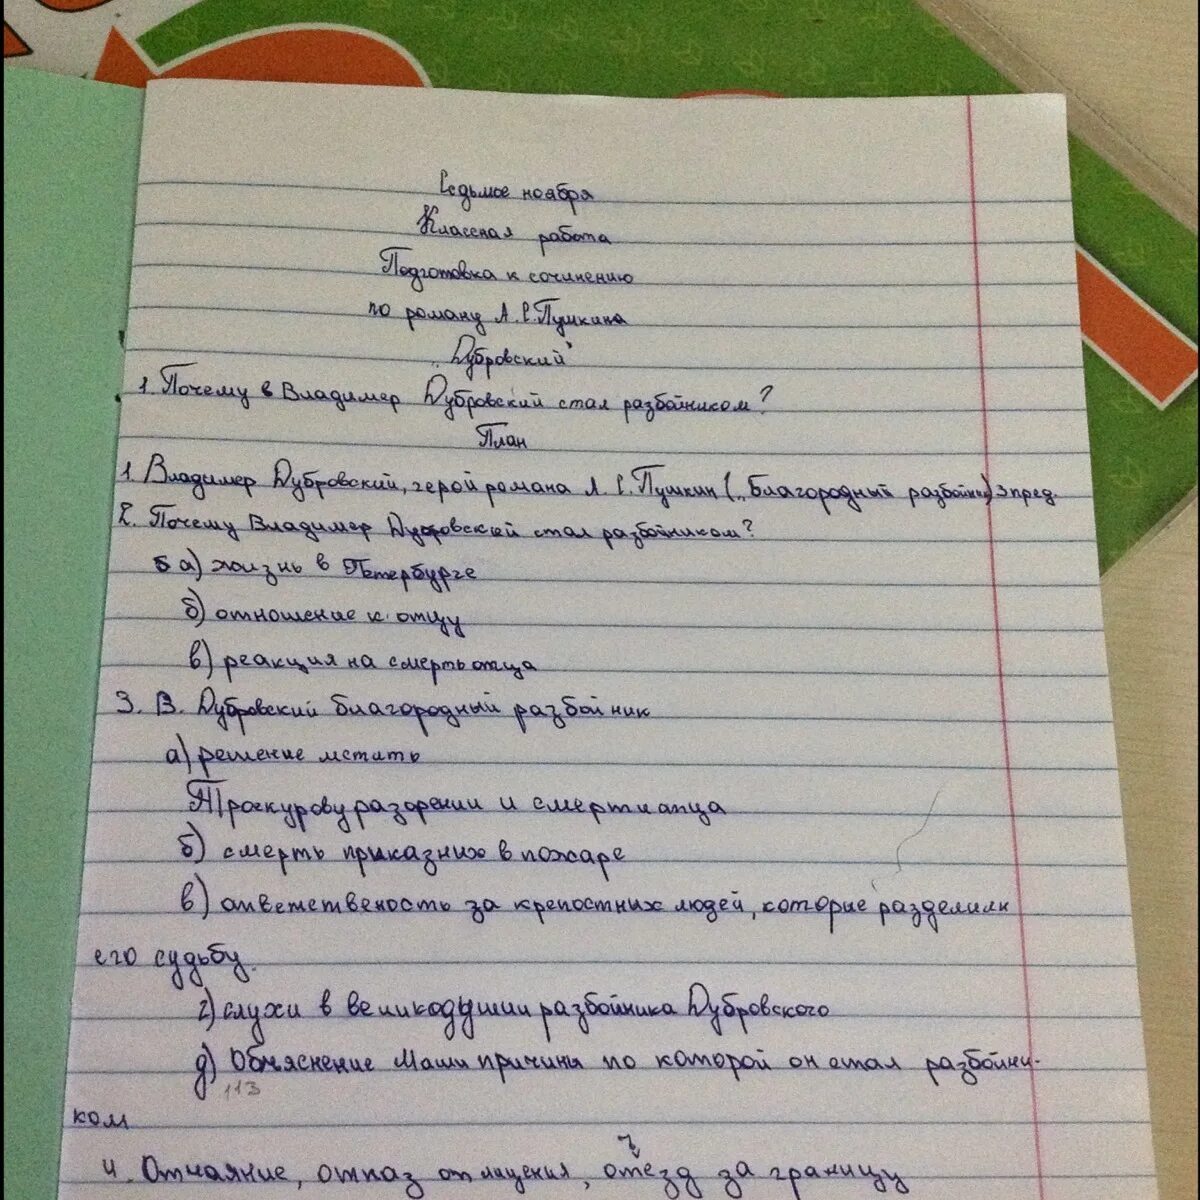 Седьмое ноября
Классная работа
Подготовка к сочинению
по роману А.С.Пушкина
„Дубровский"
1. Почему в Владимер Дубровский стал разбойником?
План
1. Владимер Дубровский, герой романа А.С.Пушкин („Благородный разбойник) 3 пред.
2. Почему Владимер Дубровский стал разбойником?
а) жизнь в Петербурге
б) отношение к отцу
в) реакция на смерть отца
3. В. Дубровский благородный разбойник
а) решение мстить
Троекурову разорении и смерти отца
б) смерть приказних в пожаре
в) ответственость за крепостних людей, которие разделили
его судьбу.
г) слухи в великодушии разбойника Дубровского
д) Объяснение Маши причини по которой он стал разбойни-
113
ком
4. Отчаяние, отказ от мщения, отезд за границу
ъ